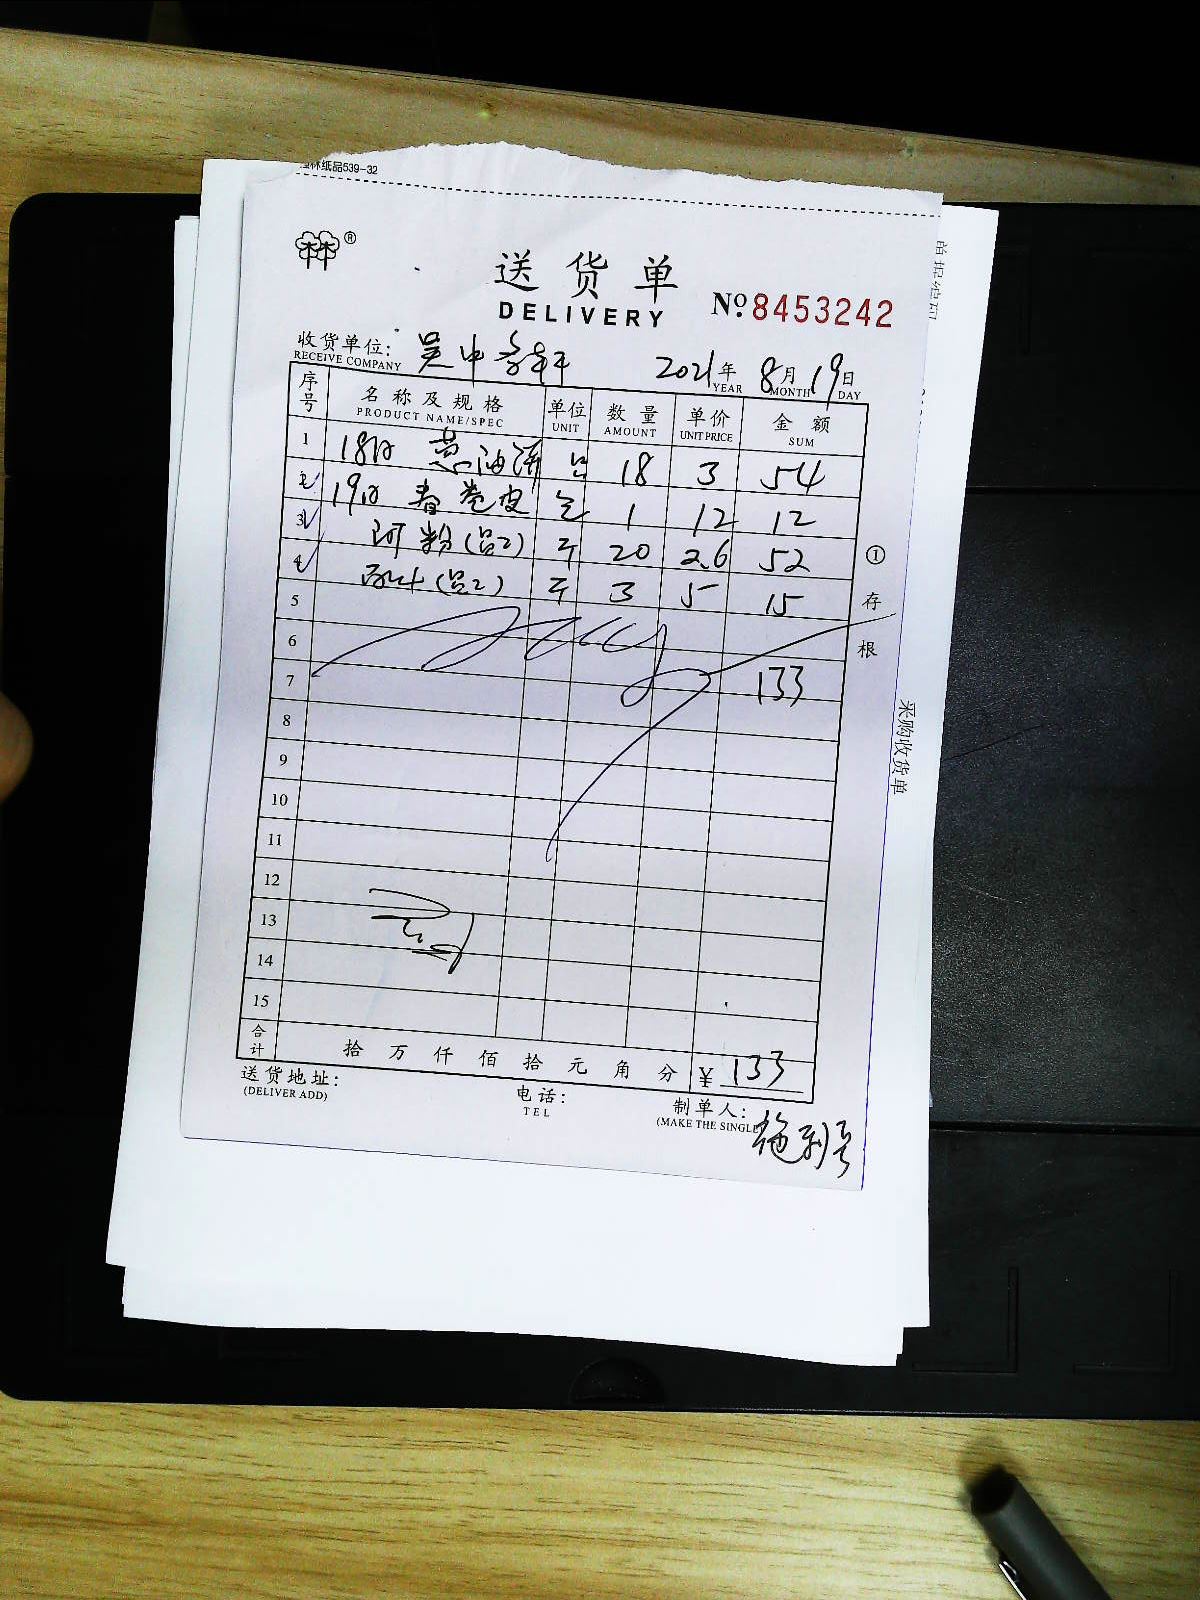 林纸品539-32
®
送货单
DELIVERY
No 8453242
收货单位: 吴中
RECEIVE COMPANY
2021年 8月 19日
YEAR MONTH DAY
序号 名称及规格 单位 数量 单价 金额
PRODUCT NAME/SPEC UNIT AMOUNT UNIT PRICE SUM
1 18日 葱油饼 18 3 54
2 19日 春卷皮 包 1 12 12
3 (吕2) 斤 20 2.6 52
4 (吕2) 斤 3 5 15
5
6
7 133
8
9
10
11
12
13
14
15
合计 拾 万 仟 佰 拾 元 角 分 ¥ 133
送货地址:
(DELIVER ADD)
电话:
TEL
制单人:
(MAKE THE SINGLE
①存根
采购收货单